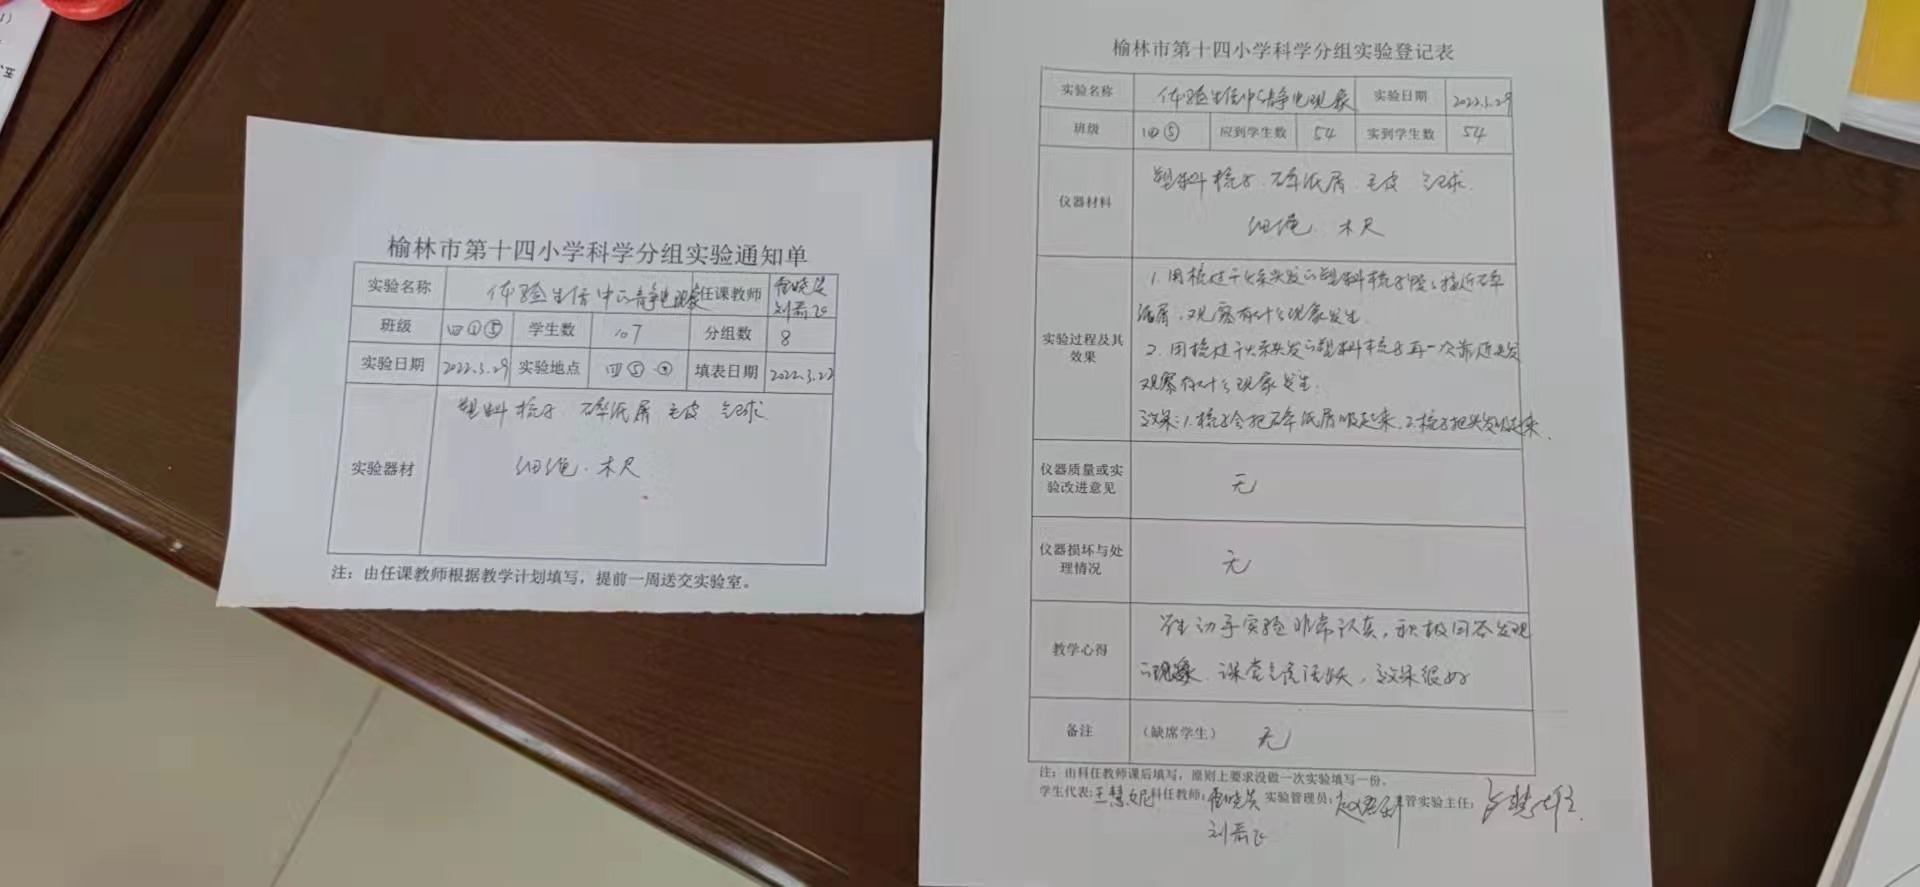 榆林市第十四小学科学分组实验通知单
实验名称 体验生活中的静电现象 任课教师 刘荔飞
班级 四①⑤ 学生数 107 分组数 8
实验日期 2022.3.29 实验地点 四⑤ 填表日期 2022.3.22
塑料梳子 碎纸屑 毛皮 气球
实验器材 细绳. 木尺
注：由任课教师根据教学计划填写，提前一周送交实验室。
榆林市第十四小学科学分组实验登记表
实验名称 体验生活中的静电现象 实验日期 2022.3.29
班级 四⑤ 应到学生数 54 实到学生数 54
仪器材料 塑料梳子. 碎纸屑. 毛皮 气球.
细绳. 木尺
实验过程及其效果 1. 用梳过干头发的塑料梳子慢慢接近碎
纸屑，观察有什么现象发生.
2. 用梳过干头发的塑料梳子再一次靠近头发
观察有什么现象发生.
效果：1.梳子会把碎纸屑吸起来. 2.梳子把头发吸起来.
仪器质量或实验改进意见 无
仪器损坏与处理情况 无
教学心得 学生动手实验非常认真，积极回答发现
的现象. 课堂气氛活跃，效果很好
备注 （缺席学生） 无
注：由科任教师课后填写，原则上要求没做一次实验填写一份。
学生代表: 王慧妮 科任教师: 实验管理员: 管实验主任:
刘荔飞